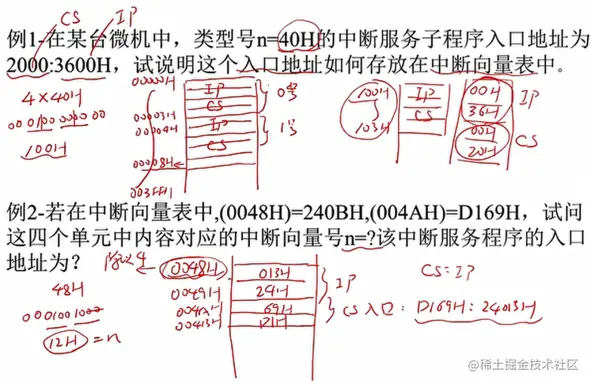 CS IP
例1-在某台微机中，类型号n=40H的中断服务子程序入口地址为
2000:3600H，试说明这个入口地址如何存放在中断向量表中。
4×40H
0001 0000 0000
100H
00000H
00003H
00004H
00008H
003FFH
IP
CS
IP
CS
0号
1号
100H
103H
IP
CS
00H
36H
00H
20H
IP
CS
例2-若在中断向量表中,(0048H)=240BH,(004AH)=D169H，试问
这四个单元中内容对应的中断向量号n=?该中断服务程序的入口
地址为？
48H
0001001000
12H=n
0048H
0049H
004AH
004BH
0BH
24H
69H
D1H
IP
CS
CS:IP
入口：D169H:240BH
@稀土掘金技术社区